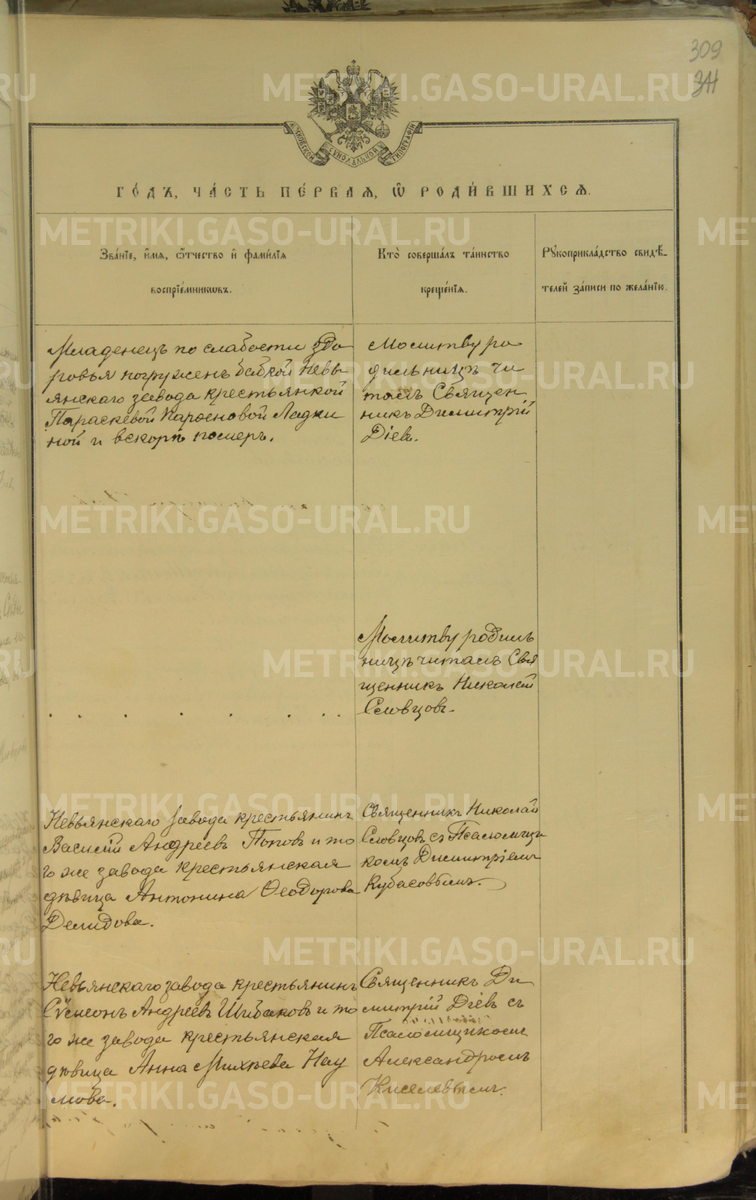 309
METRIKI.GASO-URAL.RU
МОСКОВСКОЙ СѴНОДАЛЬНОЙ ТИПОГРАФІИ
ГО́ДЪ, ЧА́СТЬ ПЕ́РВАЯ, Ѿ РОДИ́ВШИХСЯ.
Зва́нїе, и҆́мѧ, ѻ҆́тчество и҆ фами́лїѧ
воспрїе́мникѡвъ.
Кто̀ соверша́лъ та́инство
креще́нїѧ.
Рꙋкоприкла́дство свидѣ́-
телей за́писи по жела́нїю.
Младенецъ по слабости здо
ровья погруженъ бабкой Невь
янскаго завода крестьянкой
Параскевой Парѳеновой Ладки
ной и вскорѣ померъ.
Молитву ро
дильницѣ чи
талъ Священ
никъ Димитрій
Діев.
Молитву родиль
ницѣ читалъ Свя
щенникъ Николай
Словцовъ.
Невьянскаго завода крестьянинъ
Василій Андреевъ Поповъ и то
го же завода крестьянская
дѣвица Антонина Ѳеодорова
Демидова.
Священникъ Николай
Словцовъ съ Псаломщи
комъ Димитріемъ
Кубасовымъ.
Невьянскаго завода крестьянинъ
Сѵмеонъ Андреевъ Шибаковъ и то
го же завода крестьянская
дѣвица Анна Михеева Нау
мова.
Священникъ Ди
митрій Діевъ съ
Псаломщикомъ
Александромъ
Киселевымъ.